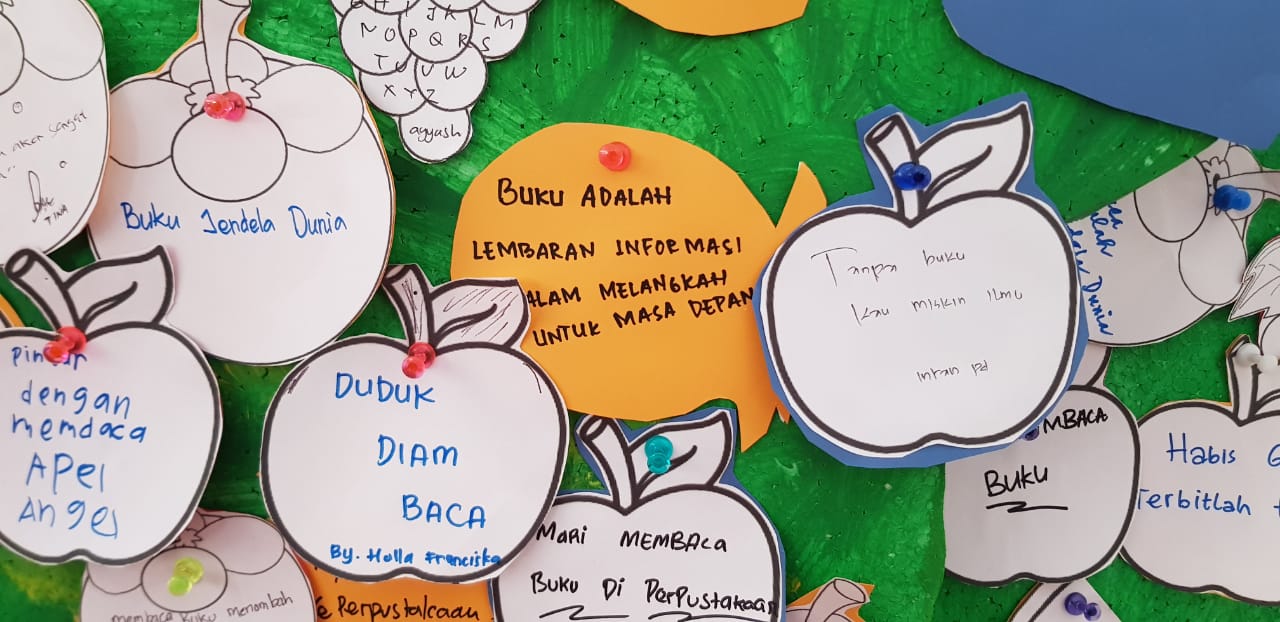 N O P Q R S
T U V W
X Y Z
agyash
TINA
Buku Jendela Dunia
BUKU ADALAH
LEMBARAN INFORMASI
ALAM MELANGKAH
UNTUK MASA DEPAN
Tanpa buku
kau miskin ilmu
intan pd
Dunia
dengan
memdaca
APel
Angel
DUDUK
DIAM
BACA
By. Holla Franciska
MARI MEMBACA
BUKU DI PERPUSTAKAAN
MBACA
BUKU
Habis G
Terbitlah
membaca buku menambah
e Perpustakaan